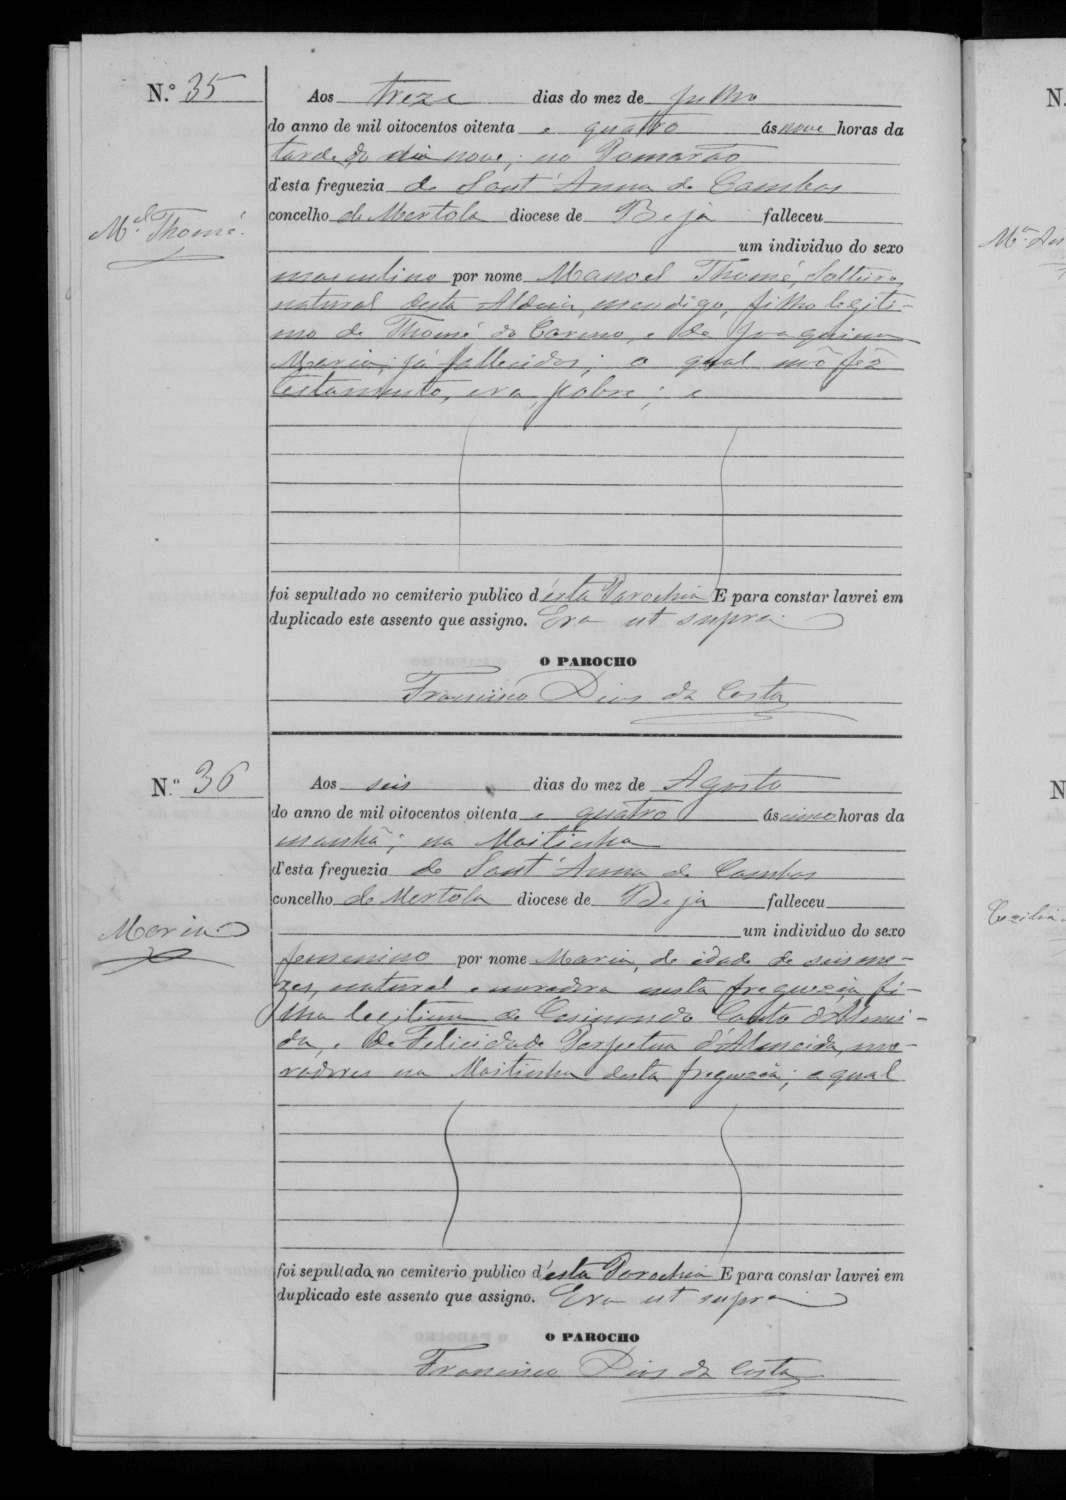 N.º 35
Aos treze dias do mez de Julho
do anno de mil oitocentos oitenta e quatro ás nove horas da
tarde do dia nove; no Pomarão
d'esta freguezia de Sant'Anna de Cambas
concelho de Mertola diocese de Beja falleceu
M.el Thomé.
um individuo do sexo
masculino por nome Manoel Thomé, Solteiro,
natural desta Aldeia, mendigo, filho legiti-
mo de Thomé do Carmo, e de Joaquina
Maria, já fallecidos; o qual não fêz
testamento, era pobre; e
foi sepultado no cemiterio publico d'ésta Parochia E para constar lavrei em
duplicado este assento que assigno. Era ut supra
O PAROCHO
Francisco Dias da Costa
N.º 36
Aos seis dias do mez de Agosto
do anno de mil oitocentos oitenta e quatro ás cinco horas da
manhã; na Moitinha
d'esta freguezia de Sant'Anna de Cambas
concelho de Mertola diocese de Beja falleceu
Maria
um individuo do sexo
femenino por nome Maria, de idade de seis me-
zes, natural e moradora nesta freguezia fi-
lha legitima de Couto d'Almei-
da, e de Felicidade Perpetua d'Almeida, mo-
radores na Moitinha desta freguezia; a qual
foi sepultada no cemiterio publico d'ésta Parochia E para constar lavrei em
duplicado este assento que assigno. Era ut supra
O PAROCHO
Francisco Dias da Costa
N.
N